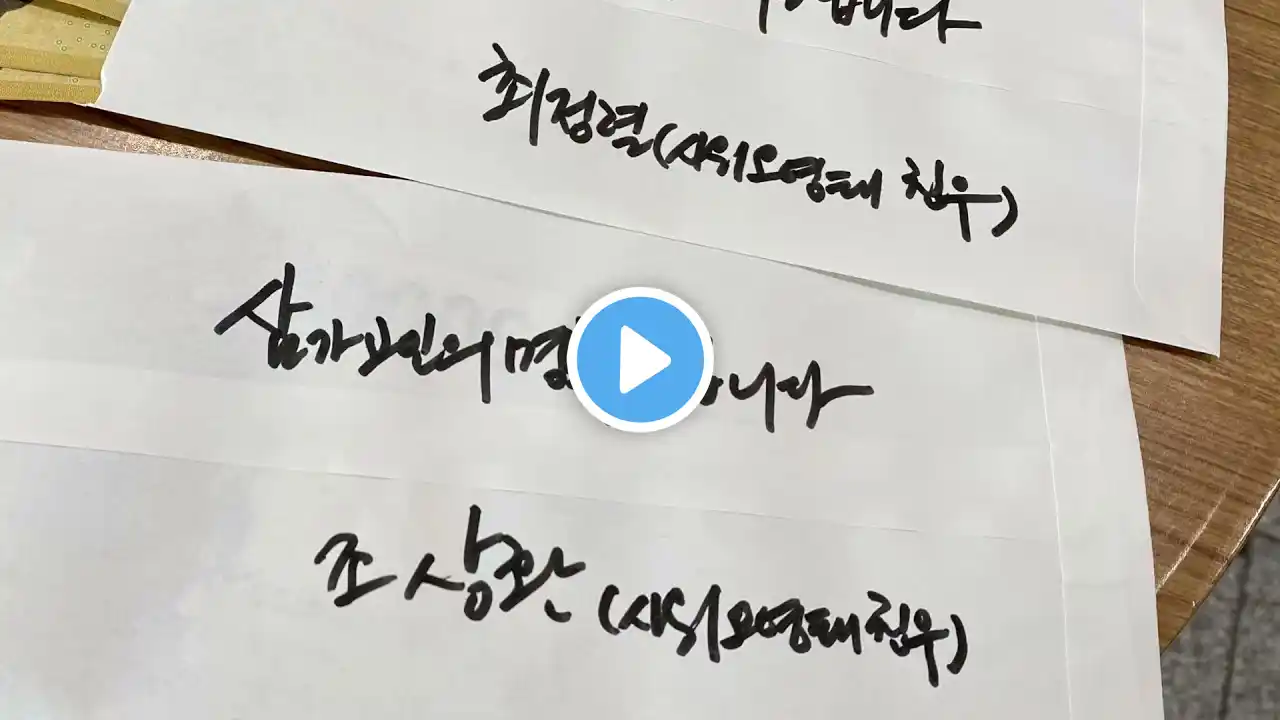 니다
최정렬(사위오영태 친우)
삼가고인의 니다
조상환(사위오영태친우)